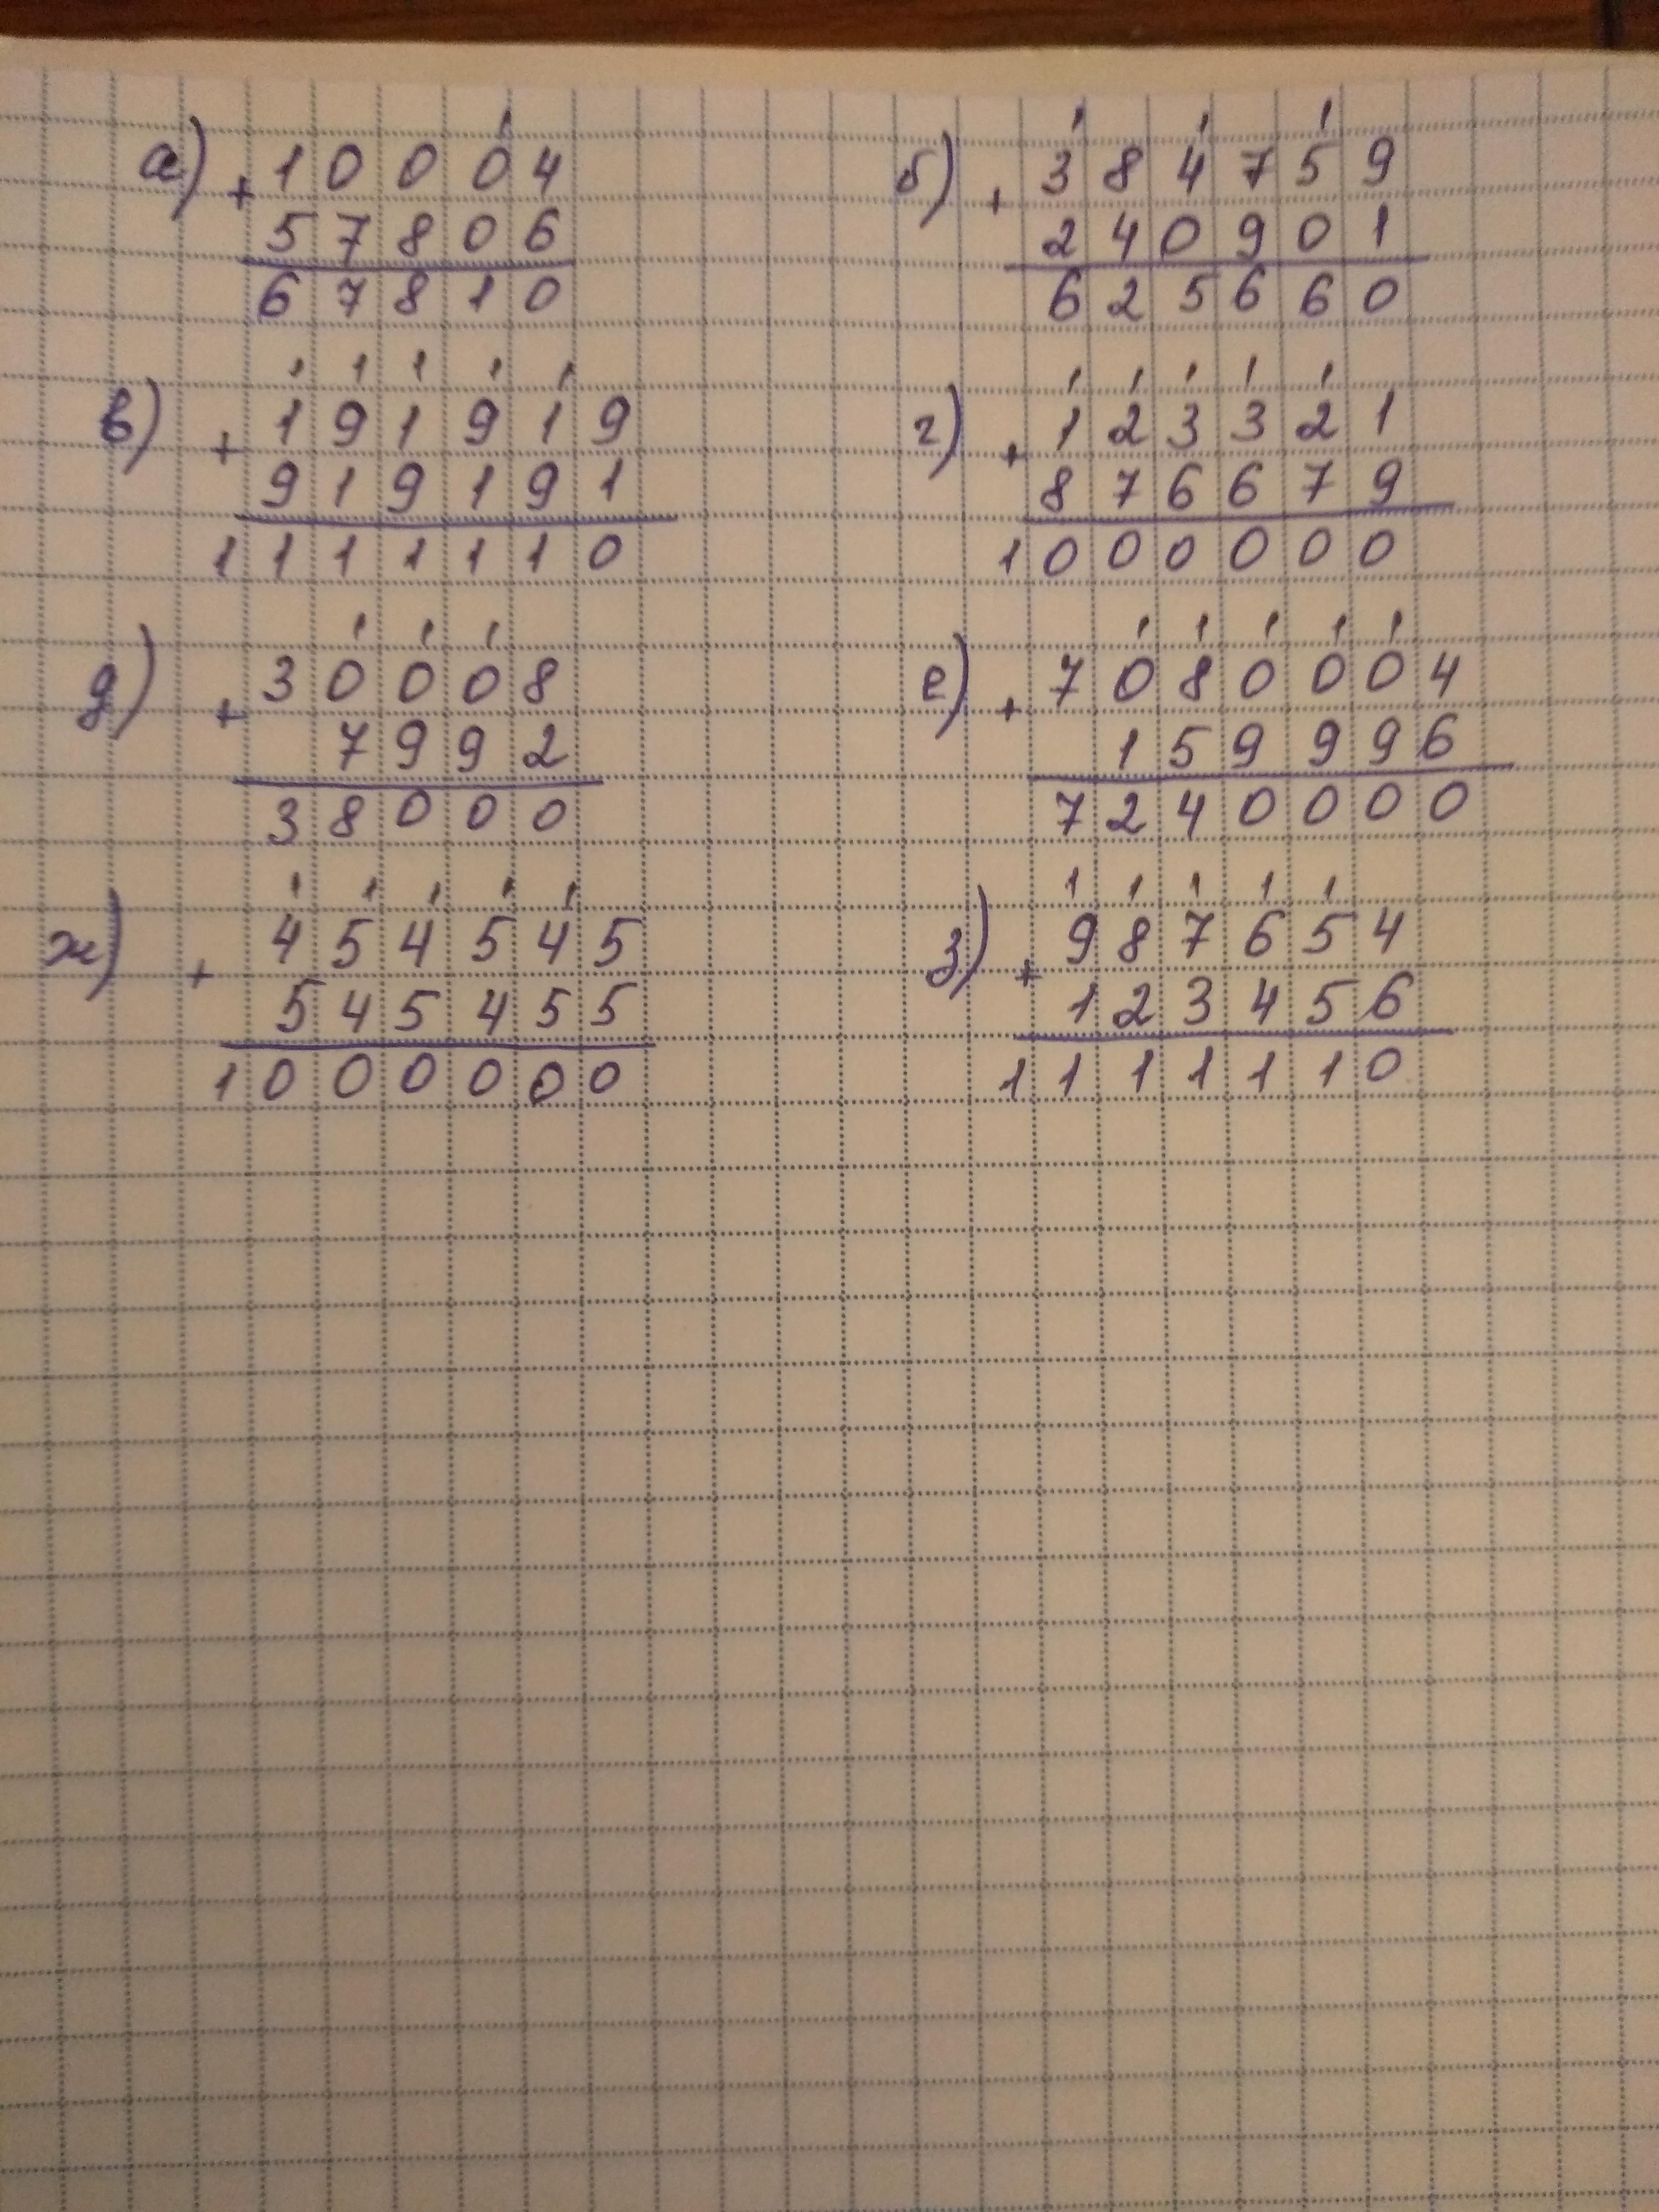 а) + 1 0 0 0 4
5 7 8 0 6
6 7 8 1 0
б) + 3 8 4 7 5 9
2 4 0 9 0 1
6 2 5 6 6 0
1 1 1 1 1
в) + 1 9 1 9 1 9
9 1 9 1 9 1
1 1 1 1 1 1 0
1 1 1 1 1
г) + 1 2 3 3 2 1
8 7 6 6 7 9
1 0 0 0 0 0 0
1 1 1
д) + 3 0 0 0 8
7 9 9 2
3 8 0 0 0
1 1 1 1 1
е) + 7 0 8 0 0 0 4
1 5 9 9 9 6
7 2 4 0 0 0 0
1 1 1 1 1
ж) + 4 5 4 5 4 5
5 4 5 4 5 5
1 0 0 0 0 0 0
1 1 1 1 1
з) + 9 8 7 6 5 4
1 2 3 4 5 6
1 1 1 1 1 1 0